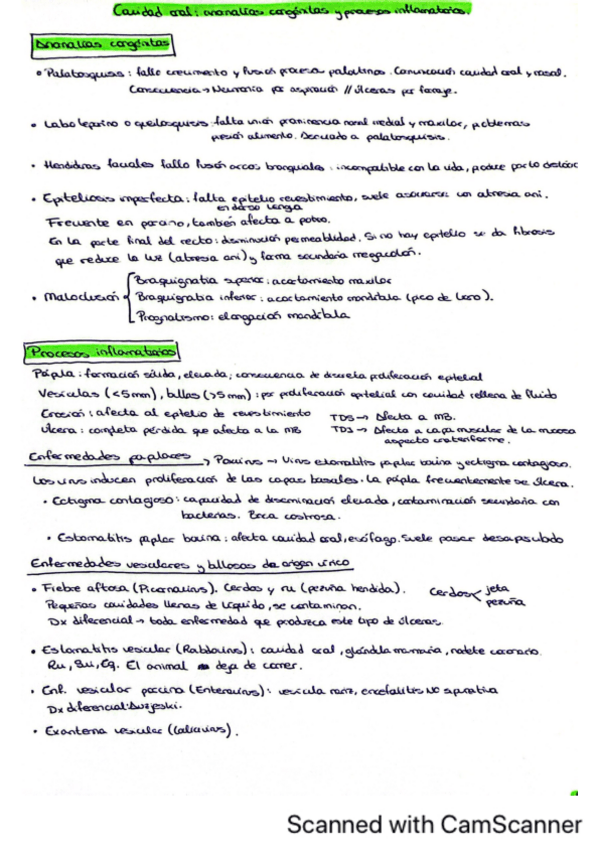 Cavidad oral: anomalías congénitas y procesos inflamatorios.
Anomalías congénitas
• Palatosquisis: fallo crecimiento y fusión procesos palatinos. Comunicación cavidad oral y nasal.
Consecuencia → Neumonía por aspiración // úlceras por forraje.
• Labio leporino o queilosquisis: falta unión prominencia nasal medial y maxilar, problemas
prensión alimento. Asociado a palatosquisis.
• Hendiduras faciales fallo fusión arcos branquiales: incompatible con la vida, produce parto distócico
• Epiteliosis imperfecta: falta epitelio revestimiento, suele asociarse con atresia ani.
en dorso lengua
Frecuente en porcino, también afecta a potros.
En la parte final del recto: disminución permeabilidad. Si no hay epitelio se da fibrosis
que reduce la luz (atresia ani) y forma secundaria megacolon.
• Maloclusión
Braquignatia superior: acortamiento maxilar
Braquignatia inferior: acortamiento mandíbula (pico de loro).
Prognatismo: elongación mandíbula
Procesos inflamatorios
Pápula: formación sólida, elevada, consecuencia de discreta proliferación epitelial
Vesículas (<5mm), bullas (>5mm): por proliferación epitelial con cavidad rellena de fluido
Erosión: afecta al epitelio de revestimiento
Úlcera: completa pérdida que afecta a la MB
TD2 → Afecta a MB.
TD3 → Afecta a capa muscular de la mucosa
aspecto crateriforme.
Enfermedades papulares → Poxvirus → Virus estomatitis papular bovina y ectigma contagioso.
Los virus inducen proliferación de las capas basales. La pápula frecuentemente se úlcera.
• Ectigma contagioso: capacidad de diseminación elevada, contaminación secundaria con
bacterias. Boca costrosa.
• Estomatitis papular bovina: afecta cavidad oral, esófago. Suele pasar desapercibido
Enfermedades vesiculares y bullosas de origen vírico
• Fiebre aftosa (Picornavirus). Cerdos y ru (pezuña hendida).
Cerdos
jeta
pezuña
Pequeñas cavidades llenas de líquido, se contaminan.
Dx diferencial → toda enfermedad que produzca este tipo de úlceras.
• Estomatitis vesicular (Rabdovirus): cavidad oral, glándula mamaria, rodete coronario.
Ru, Sui, Eq. El animal deja de comer.
• Enf. vesicular porcina (Enterovirus): vesícula nariz, encefalitis no supurativa
Dx diferencial: Aujeski.
• Exantema vesicular (Calicivirus).
Scanned with CamScanner